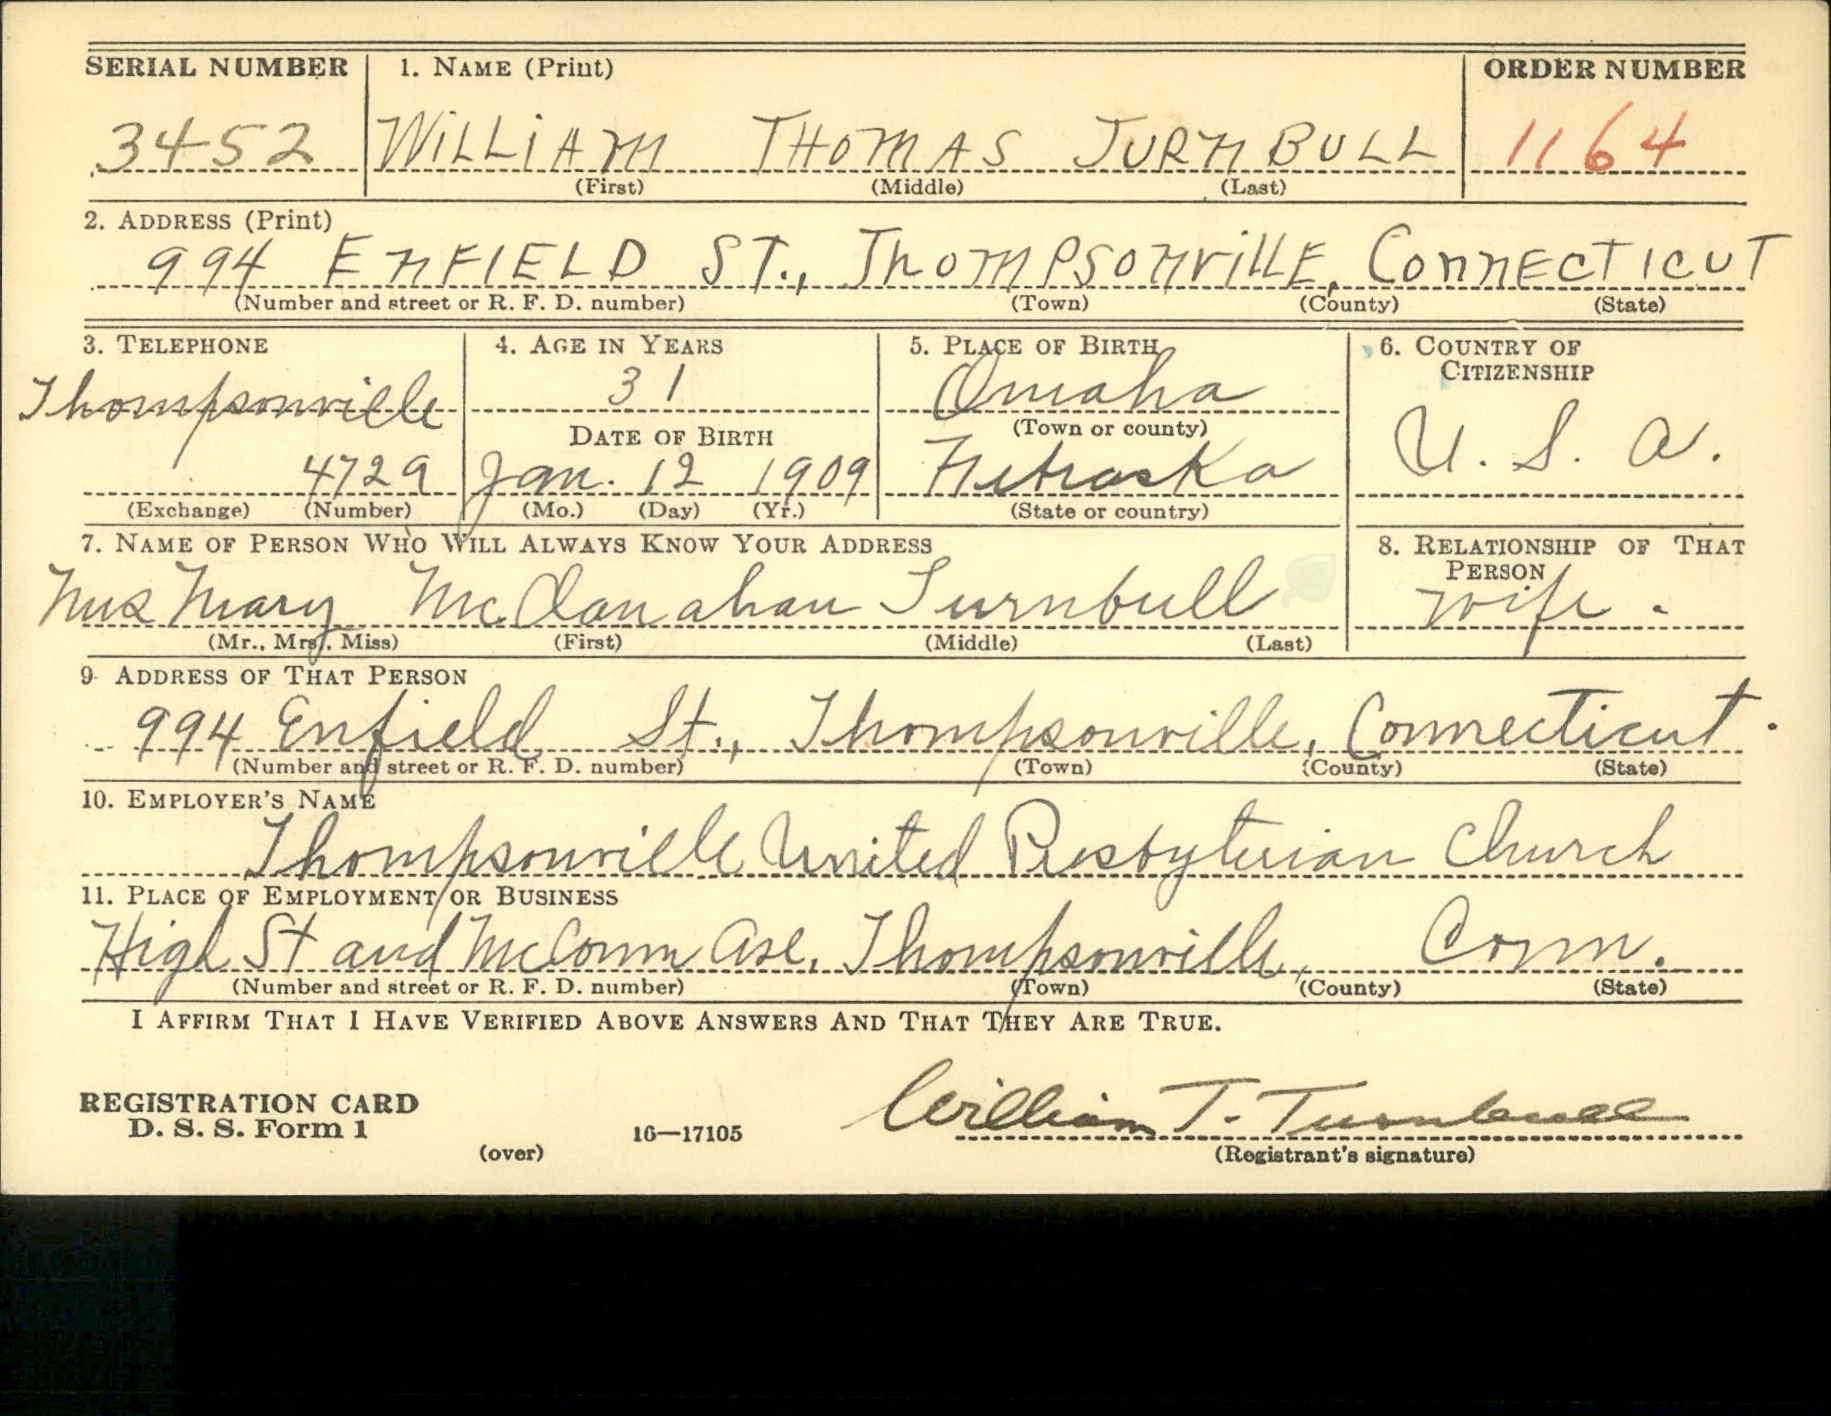 SERIAL NUMBER 1. NAME (Print) ORDER NUMBER
3452 WILLIAM THOMAS TURNBULL 1164
(First) (Middle) (Last)
2. ADDRESS (Print)
994 ENFIELD ST., ThOMPSONVillE, CONNECTICUT
(Number and street or R. F. D. number) (Town) (County) (State)
3. TELEPHONE 4. AGE IN YEARS 5. PLACE OF BIRTH 6. COUNTRY OF CITIZENSHIP
Thompsonville 31 Omaha U. S. A.
DATE OF BIRTH (Town or county)
4729 Jan. 12 1909 Nebraska
(Exchange) (Number) (Mo.) (Day) (Yr.) (State or country)
7. NAME OF PERSON WHO WILL ALWAYS KNOW YOUR ADDRESS 8. RELATIONSHIP OF THAT PERSON
Mrs Mary McClanahan Turnbull wife.
(Mr., Mrs., Miss) (First) (Middle) (Last)
9. ADDRESS OF THAT PERSON
994 Enfield St., Thompsonville, Connecticut.
(Number and street or R. F. D. number) (Town) (County) (State)
10. EMPLOYER'S NAME
Thompsonville United Presbyterian Church
11. PLACE OF EMPLOYMENT OR BUSINESS
High St and McConn Ave, Thompsonville, Conn.
(Number and street or R. F. D. number) (Town) (County) (State)
I AFFIRM THAT I HAVE VERIFIED ABOVE ANSWERS AND THAT THEY ARE TRUE.
William T. Turnbull
REGISTRATION CARD
D. S. S. Form 1
(over) 16—17105 (Registrant's signature)